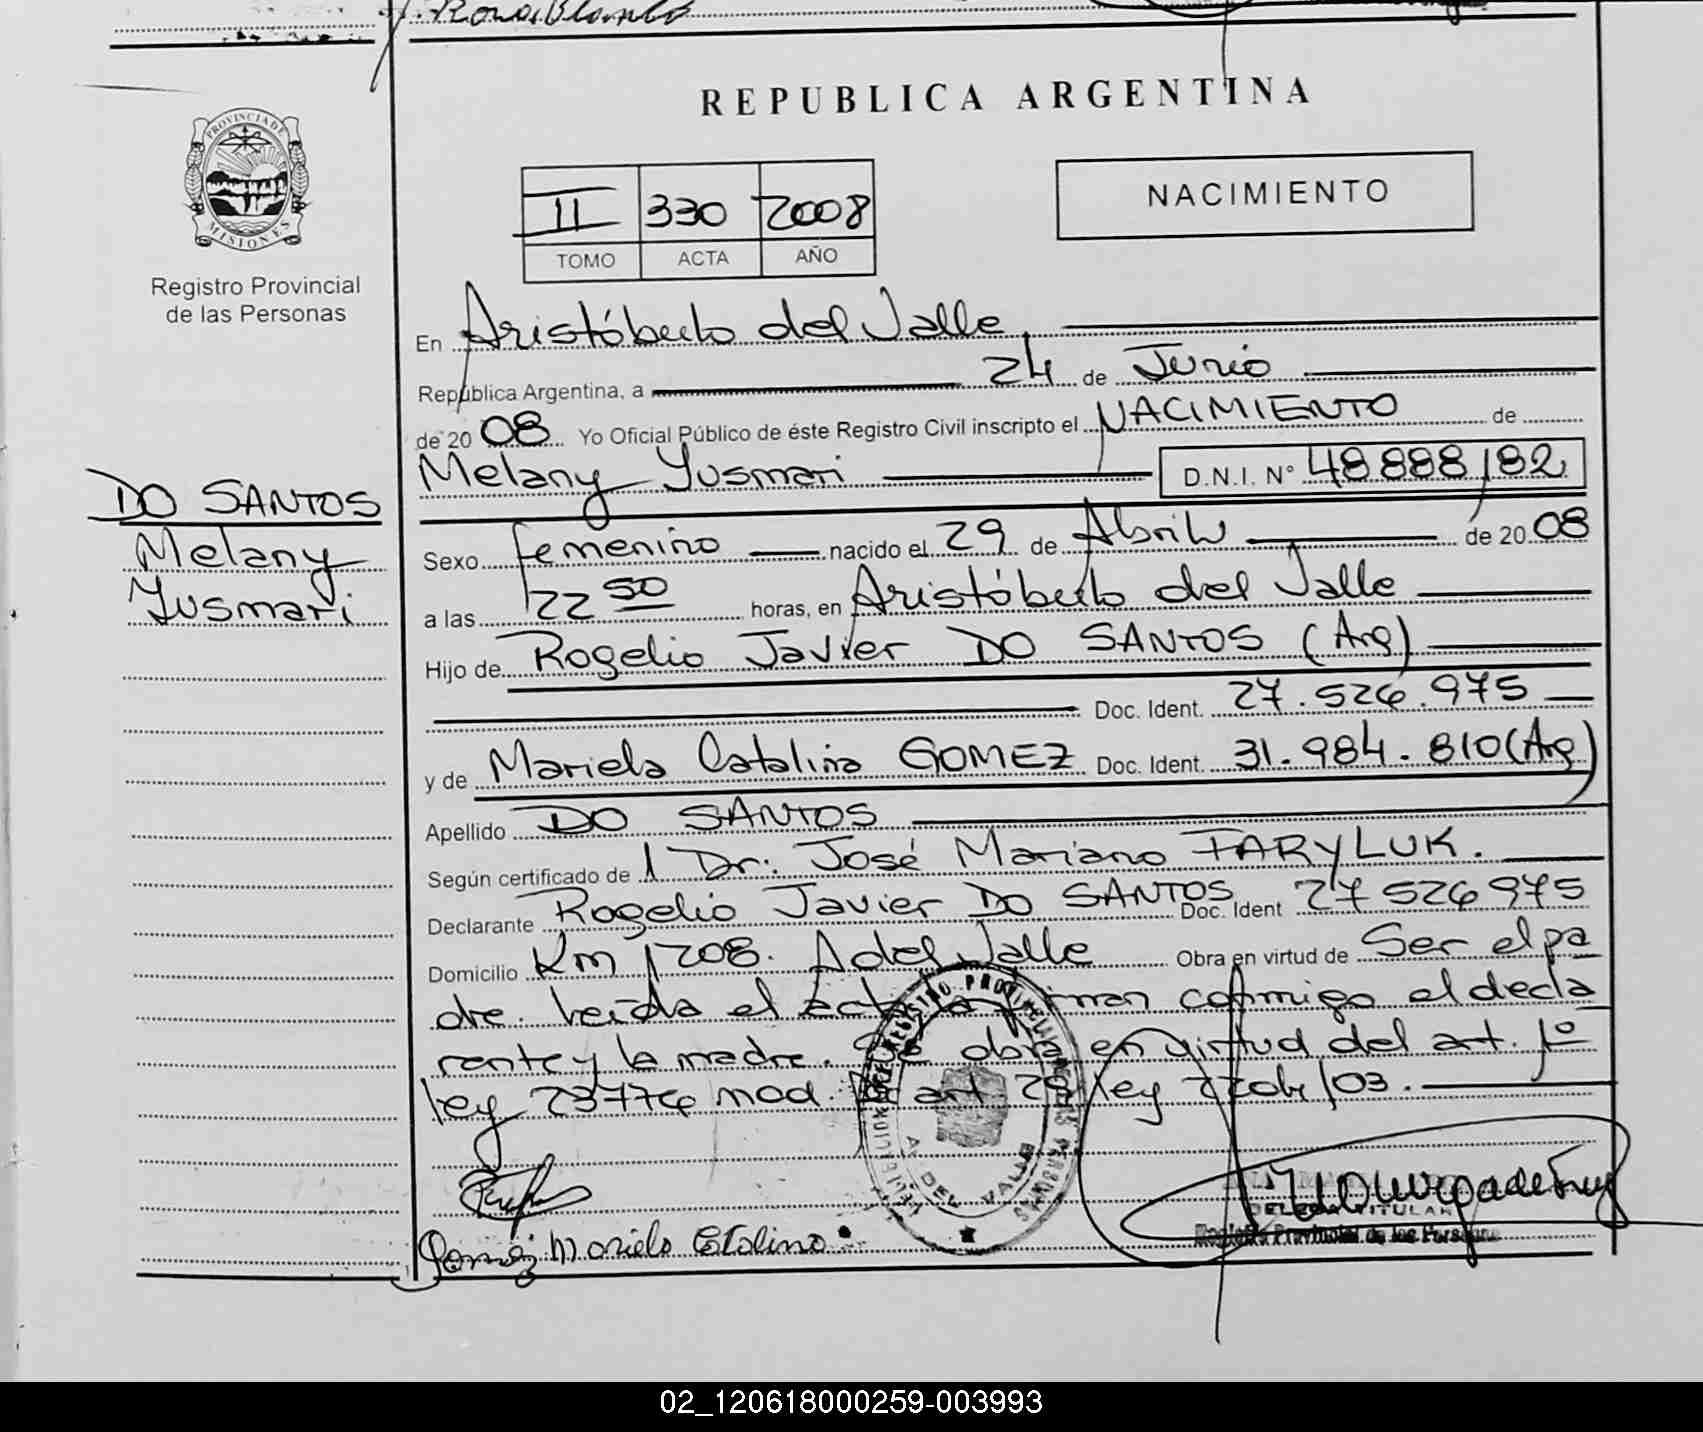 REPUBLICA ARGENTINA
PROVINCIA DE
MISIONES
Registro Provincial
de las Personas
II 330 2008
TOMO ACTA AÑO
NACIMIENTO
En Aristóbulo del Valle
República Argentina, a 24 de Junio
de 20 08 Yo Oficial Público de éste Registro Civil inscripto el NACIMIENTO de
Melany Yusmari D.N.I. N° 48.888.182
DO SANTOS
Melany
Yusmari
Sexo femenino nacido el 29 de Abril de 20 08
a las 22 50 horas, en Aristóbulo del Valle
Hijo de Rogelio Javier DO SANTOS (Arg)
Doc. Ident. 27.526.975
y de Mariela Catalina GOMEZ Doc. Ident. 31.984.810 (Arg)
Apellido DO SANTOS
Según certificado de l Dr. José Mariano FARYLUK.
Declarante Rogelio Javier DO SANTOS Doc. Ident 27 526 975
Domicilio Km 1208. A del Valle Obra en virtud de Ser el pa
dre. Leída el acta la firman conmigo el decla
rante y la madre. Se obra en virtud del art. 1º
ley 23776 mod. art 29 ley /03.
REGISTRO PROVINCIAL DE LAS PERSONAS
A. DEL VALLE
Gomez Mariela Catalina
TITULAR
Registro Provincial de las Personas
02_120618000259-003993